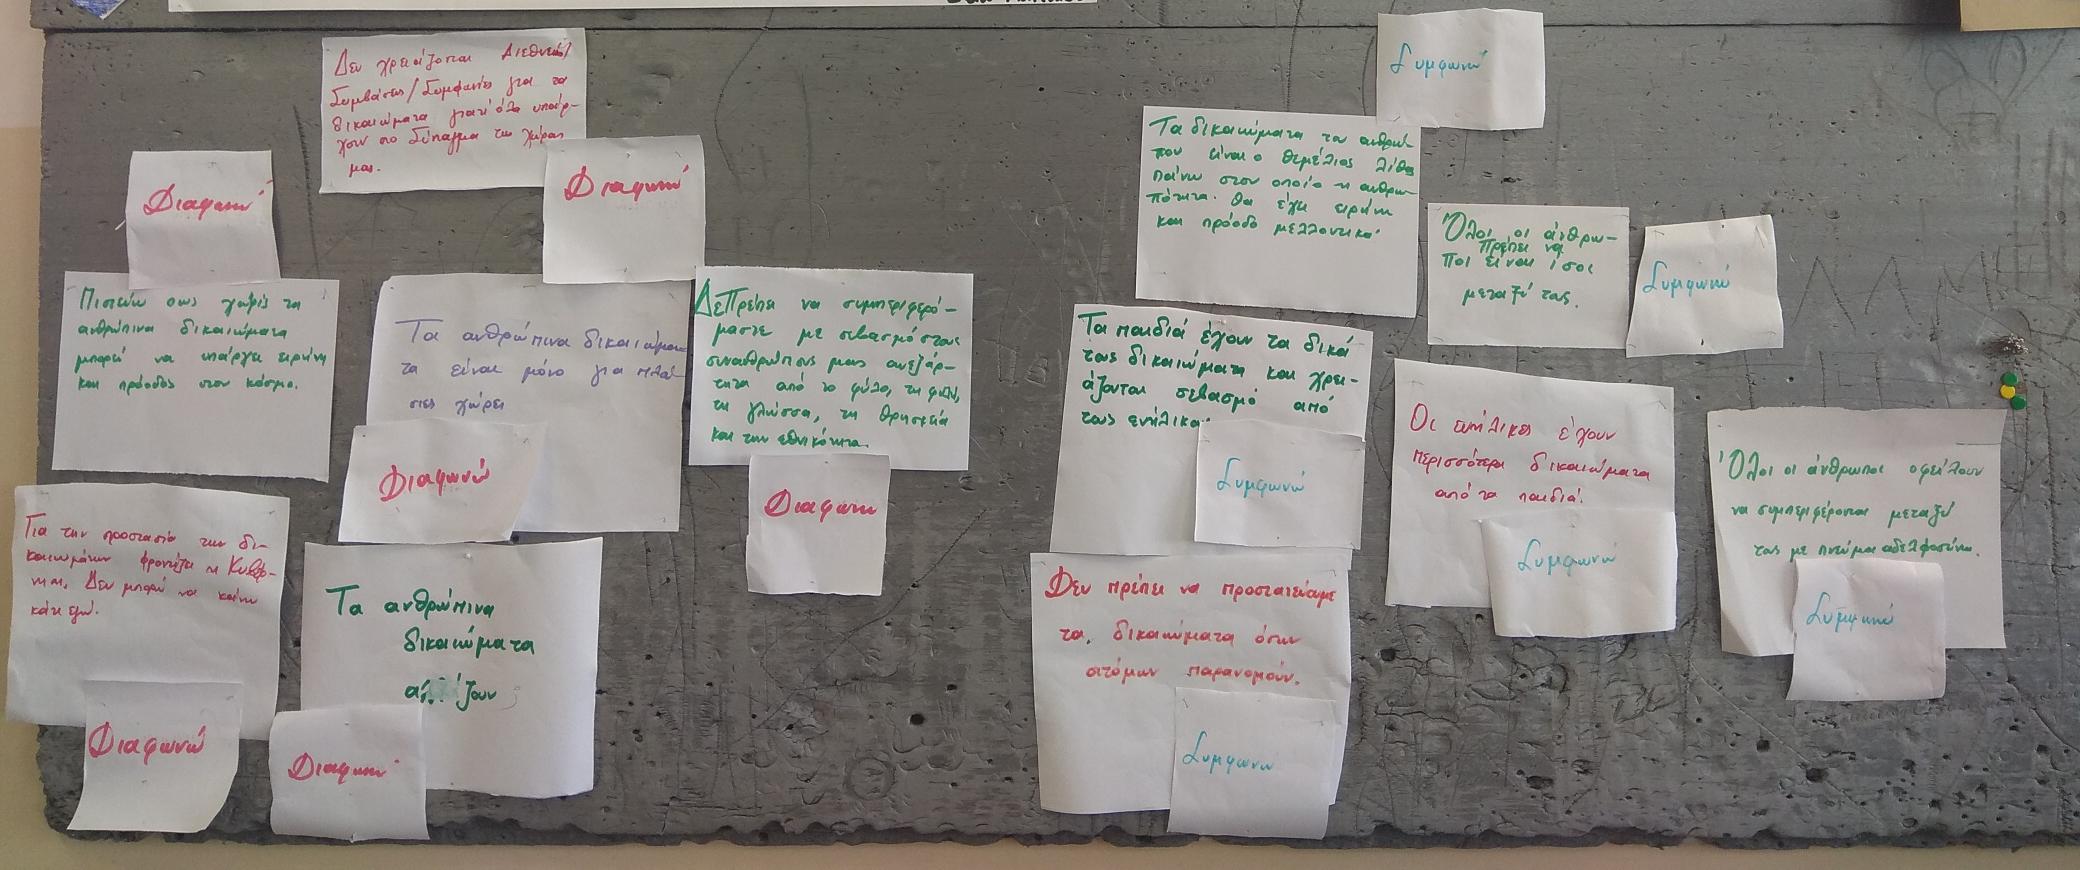 Δεν χρειάζονται Διεθνείς
Συμβάσεις/Συμφωνίες για τα
δικαιώματα γιατί όλα υπάρ-
χουν στο Σύνταγμα της χώρας
μας.
Διαφωνώ
Διαφωνώ
Πιστεύω πως χωρίς τα
ανθρώπινα δικαιώματα
μπορεί να υπάρχει ειρήνη
και πρόοδος στον κόσμο.
Τα ανθρώπινα δικαιώμα-
τα είναι μόνο για πλού-
σιες χώρες
Διαφωνώ
Δε Πρέπει να συμπεριφερό-
μαστε με σεβασμό στους
συνανθρώπους μας ανεξάρ-
τητα από το φύλο, τη φυλή,
τη γλώσσα, τη θρησκεία
και την εθνικότητα.
Διαφωνώ
Για την προστασία των δι-
καιωμάτων φροντίζει η Κυβέρ-
νηση. Δεν μπορώ να κάνω
κάτι εγώ.
Διαφωνώ
Τα ανθρώπινα
δικαιώματα
Διαφωνώ
Συμφωνώ
Τα δικαιώματα του ανθρώ-
που είναι ο θεμέλιος λίθος
πάνω στον οποίο η ανθρω-
πότητα θα έχει ειρήνη
και πρόοδο μελλοντικά
Όλοι οι άνθρω-
πρέπει να
ποι είναι ίσοι
μεταξύ τους.
Συμφωνώ
Τα παιδιά έχουν τα δικά
τους δικαιώματα και χρει-
άζονται σεβασμό από
τους ενήλικες
Συμφωνώ
Οι ενήλικες έχουν
περισσότερα δικαιώματα
από τα παιδιά.
Συμφωνώ
Όλοι οι άνθρωποι οφείλουν
να συμπεριφέρονται μεταξύ
τους με πνεύμα αδελφοσύνης.
Συμφωνώ
Δεν πρέπει να προστατεύουμε
τα δικαιώματα όσων
ατόμων παρανομούν.
Συμφωνώ